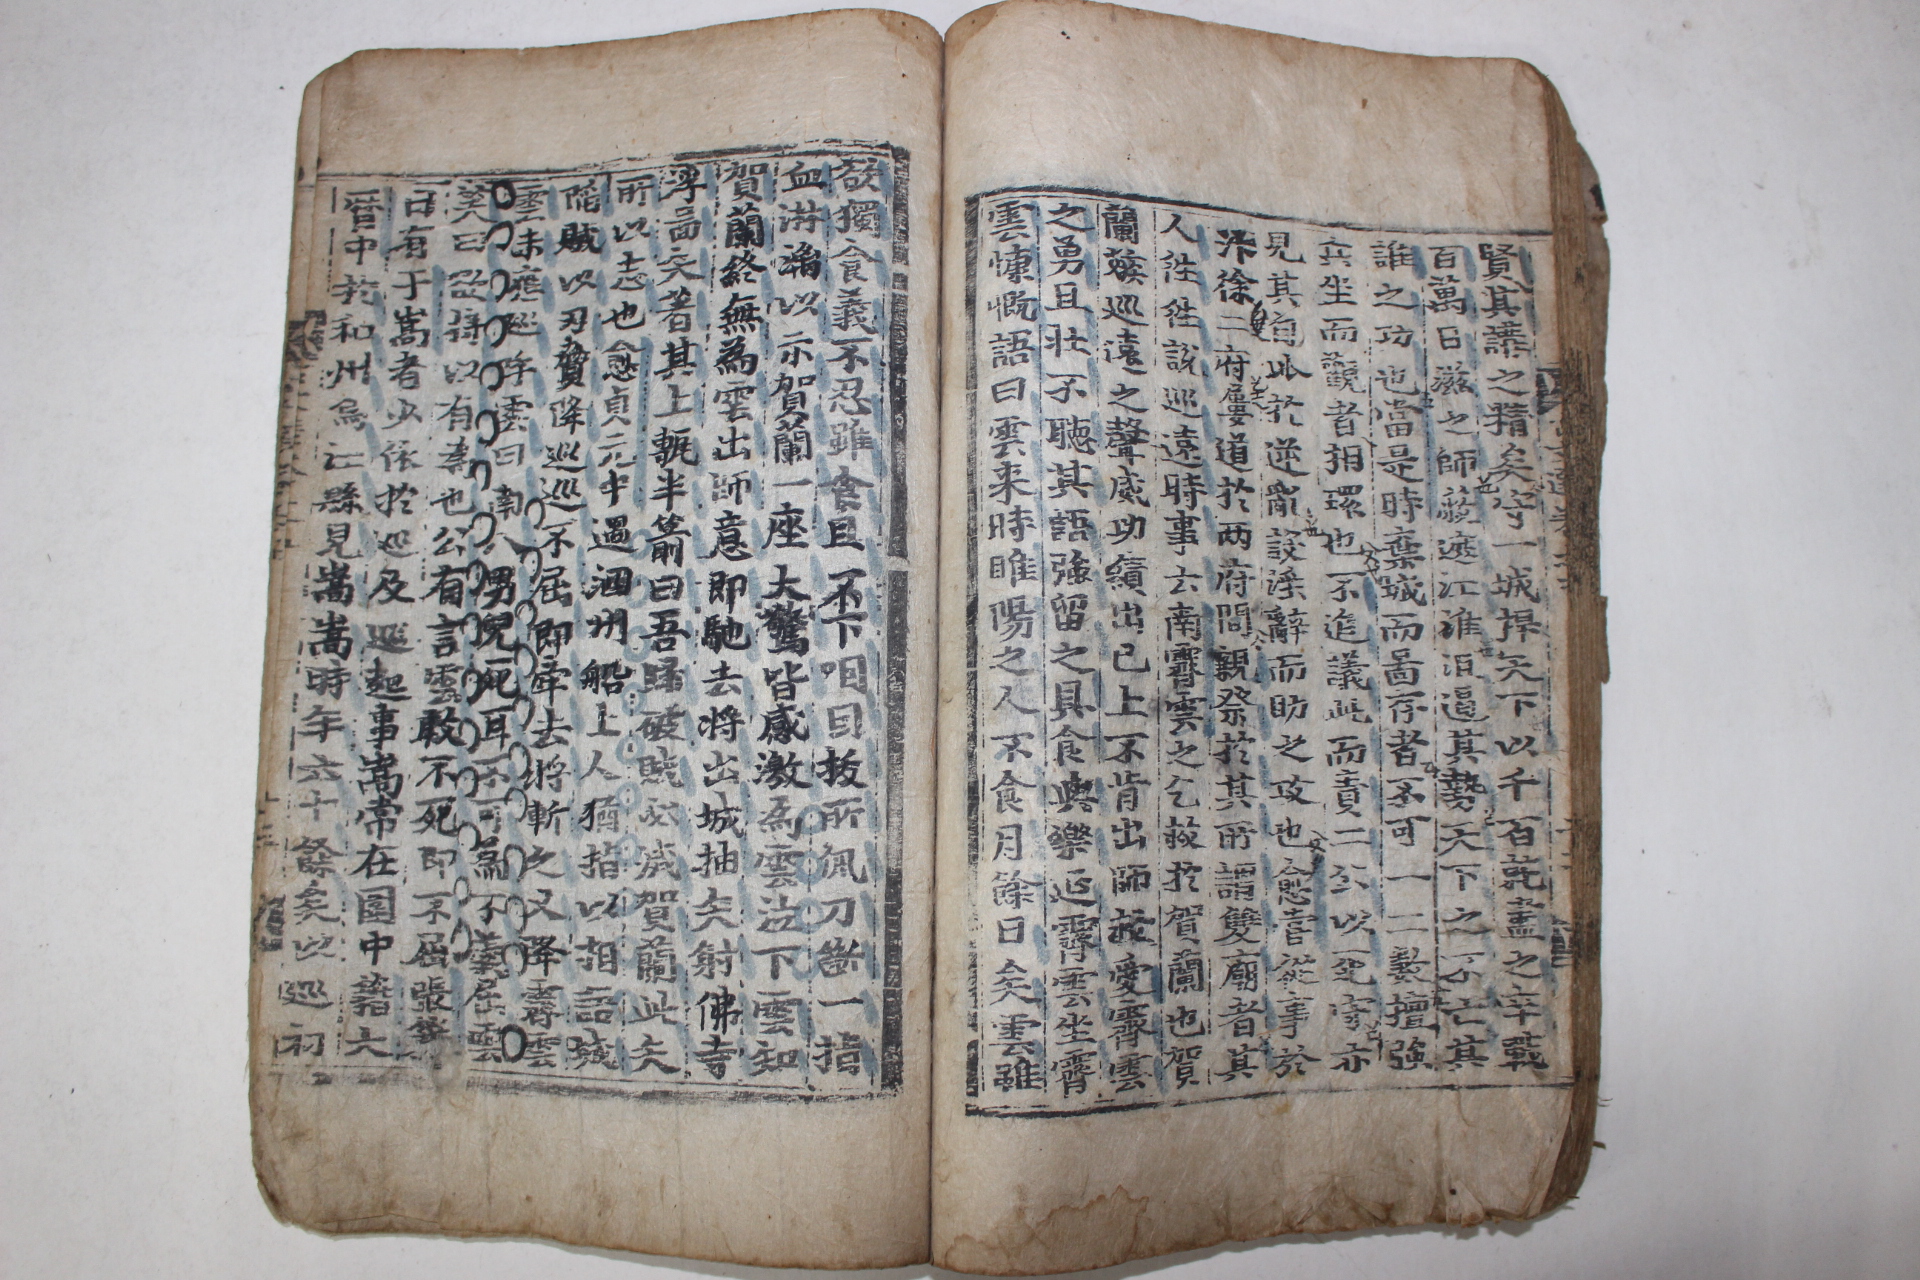 賢其講之精矣守一城捍天下以千百就盡之卒戰
百萬日滋之師蔽遮江淮沮遏其勢天下之不亡其
誰之功也當是時棄城而啚存者不可一二數擅強
兵坐而觀者相環也不追議此而責二公以死守亦
見其自比於逆亂設淫辭而助之攻也愈嘗從事於
汴徐二府屢道於两府間親祭於其所謂雙廟者其
人往往說巡遠時事云南霽雲之乞救於賀蘭也賀
蘭嫉巡遠之聲威功績出己上不肯出師救愛霽雲
之勇且壯不聽其語強留之具食與樂延霽雲坐霽
雲慷慨語曰雲来時睢陽之人不食月餘日矣雲雖
欲獨食義不忍雖食且不下咽因拔所佩刀斷一指
血淋漓以示賀蘭一座大驚皆感激為雲泣下雲知
賀蘭終無為雲出師意即馳去將出城抽矢射佛寺
浮啚矢著其上甎半箭曰吾歸破賊必滅賀蘭此矢
所以志也愈貞元中過泗州船上人猶指以相語城
陷賊以刃脅降巡巡不屈即牽去將斬之又降霽雲
雲未應巡呼雲曰南八男兒死耳不可為不義屈雲
笑曰欲將以有為也公有言雲敢不死即不屈張籍
曰有于嵩者少依於巡及巡起事嵩常在圍中籍大
曆中於和州烏江縣見嵩嵩時年六十餘矣以巡初